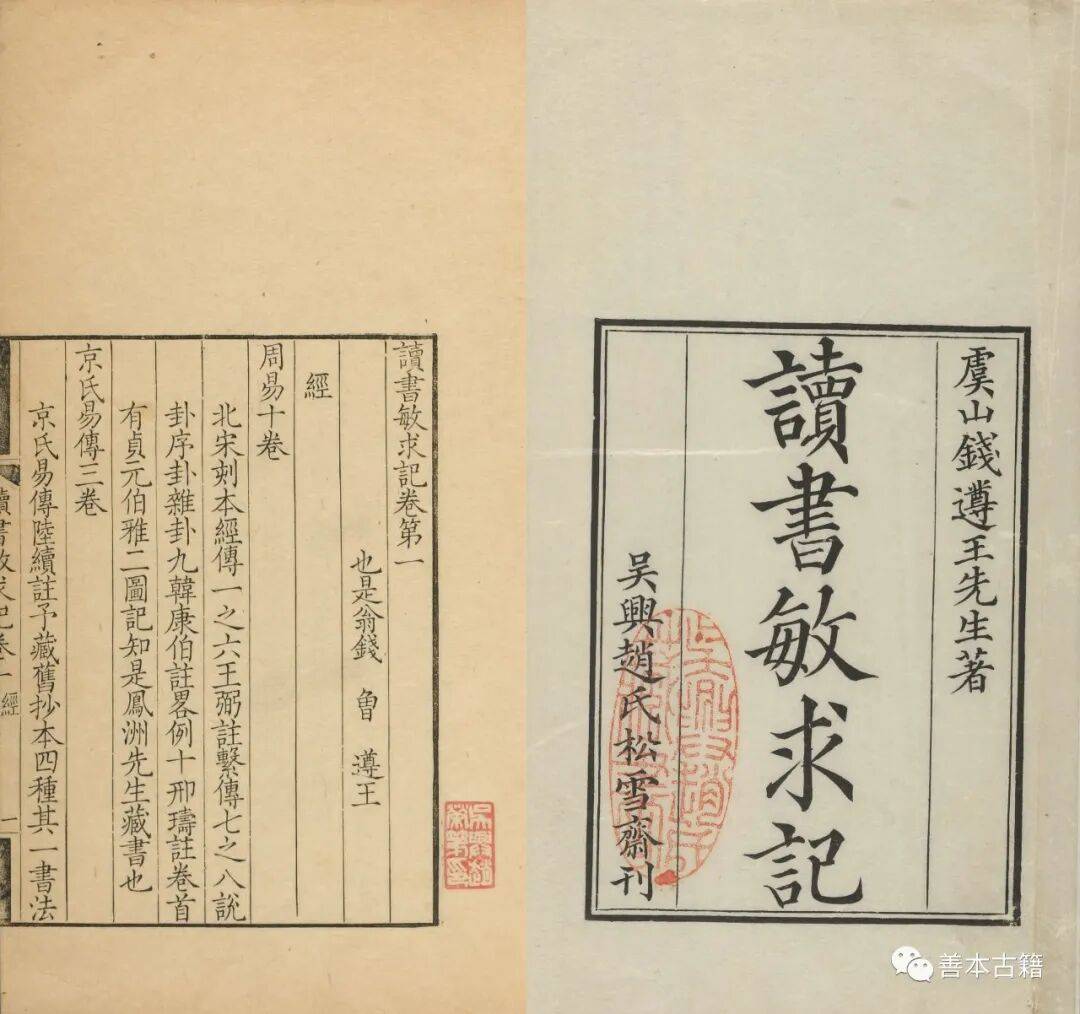 虞山錢遵王先生著
讀書敏求記
吳興趙氏松雪齋刊
讀書敏求記卷第一
也是翁錢 曾 遵王
經
周易十卷
北宋刻本經傳一之六王弼註繫傳七之八說
卦序卦雜卦九韓康伯註畧例十邢璹註卷首
有貞元伯雅二圖記知是鳳洲先生藏書也
京氏易傳三卷
京氏易傳陸續註予藏舊抄本四種其一書法
讀書敏求記卷一 經 一
善本古籍